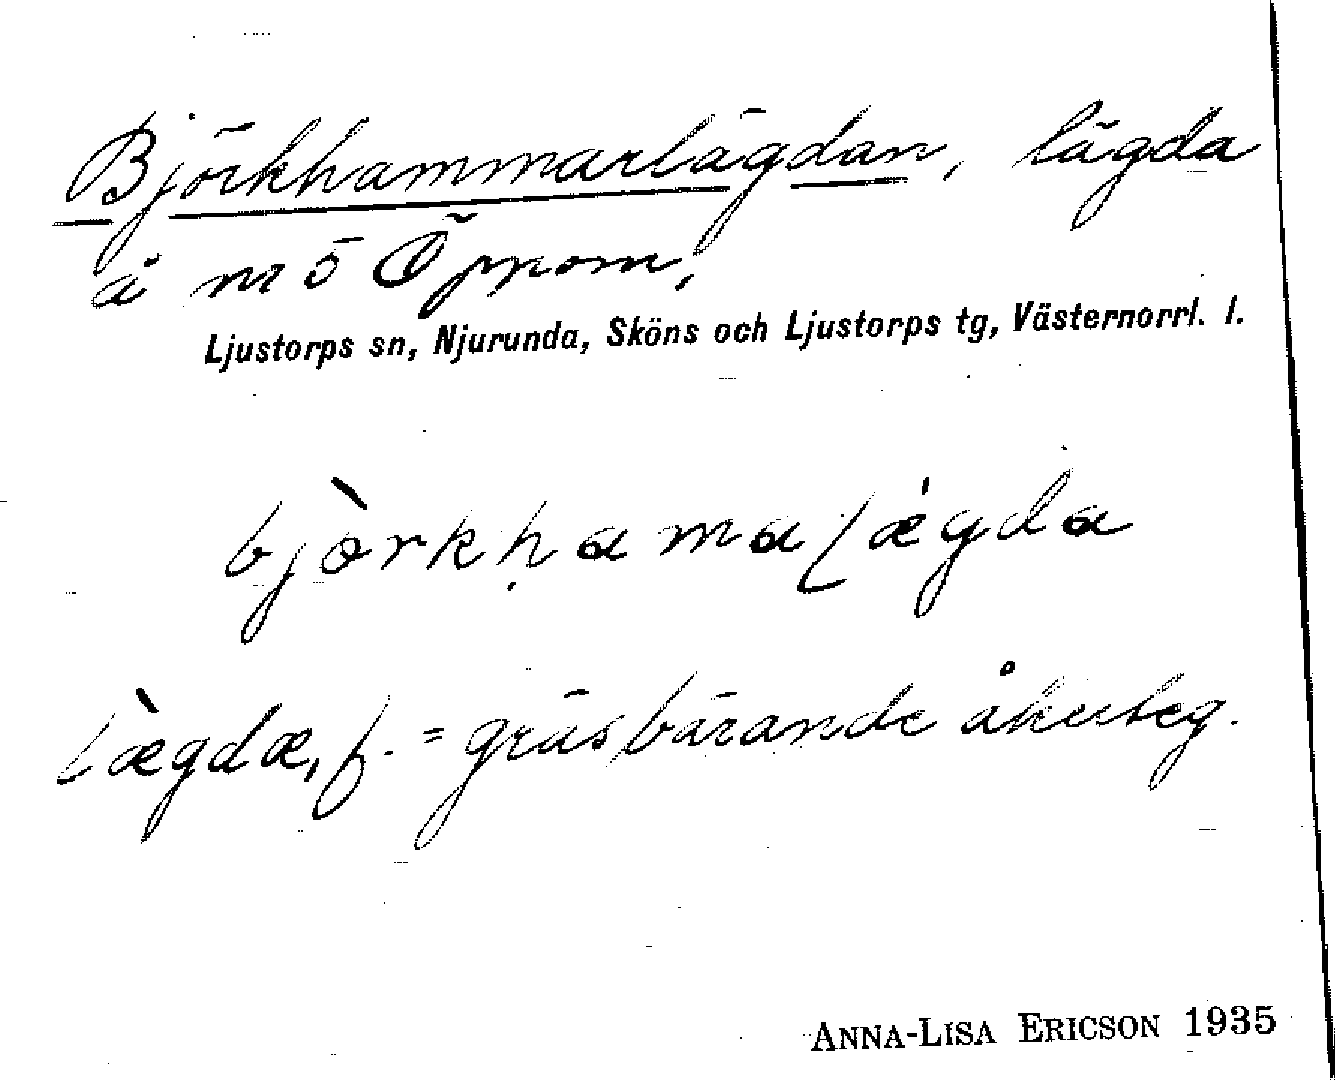 Björkhammarlägdan, lägda
å nr 5 Öppom,
Ljustorps sn, Njurunda, Sköns och Ljustorps tg, Västernorrl. l.
bjòrkḥamaɭǽgda
lægdæ, f. = gräsbärande åkerteg.
ANNA-LISA ERICSON 1935